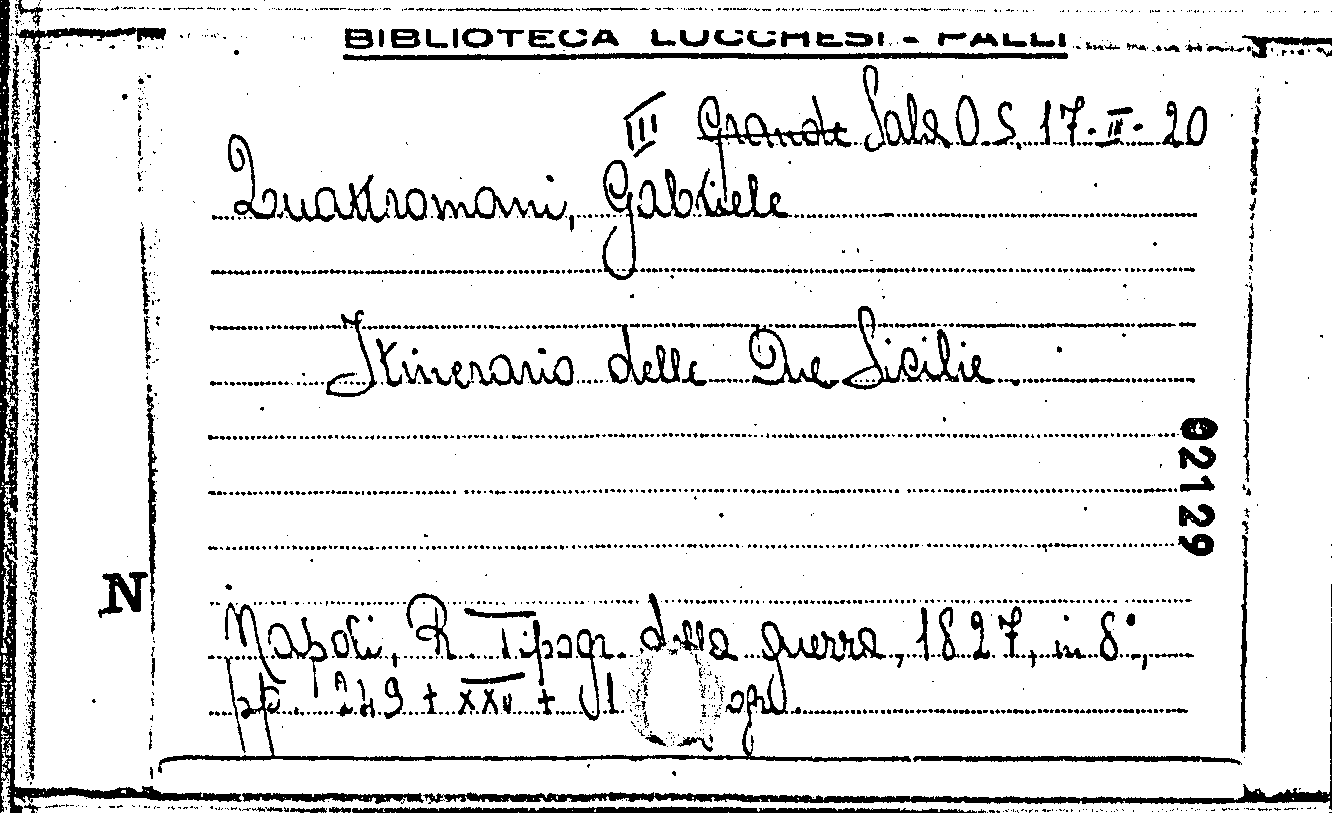 BIBLIOTECA LUCCHESI - PALLI
III Grande Sala O.S. 17-II-20
Quattromani, Gabriele
Itinerario delle Due Sicilie.
02129
N
Napoli, R. Tipogr. della guerra, 1827, in 8°,
pp. 249 + XXV +